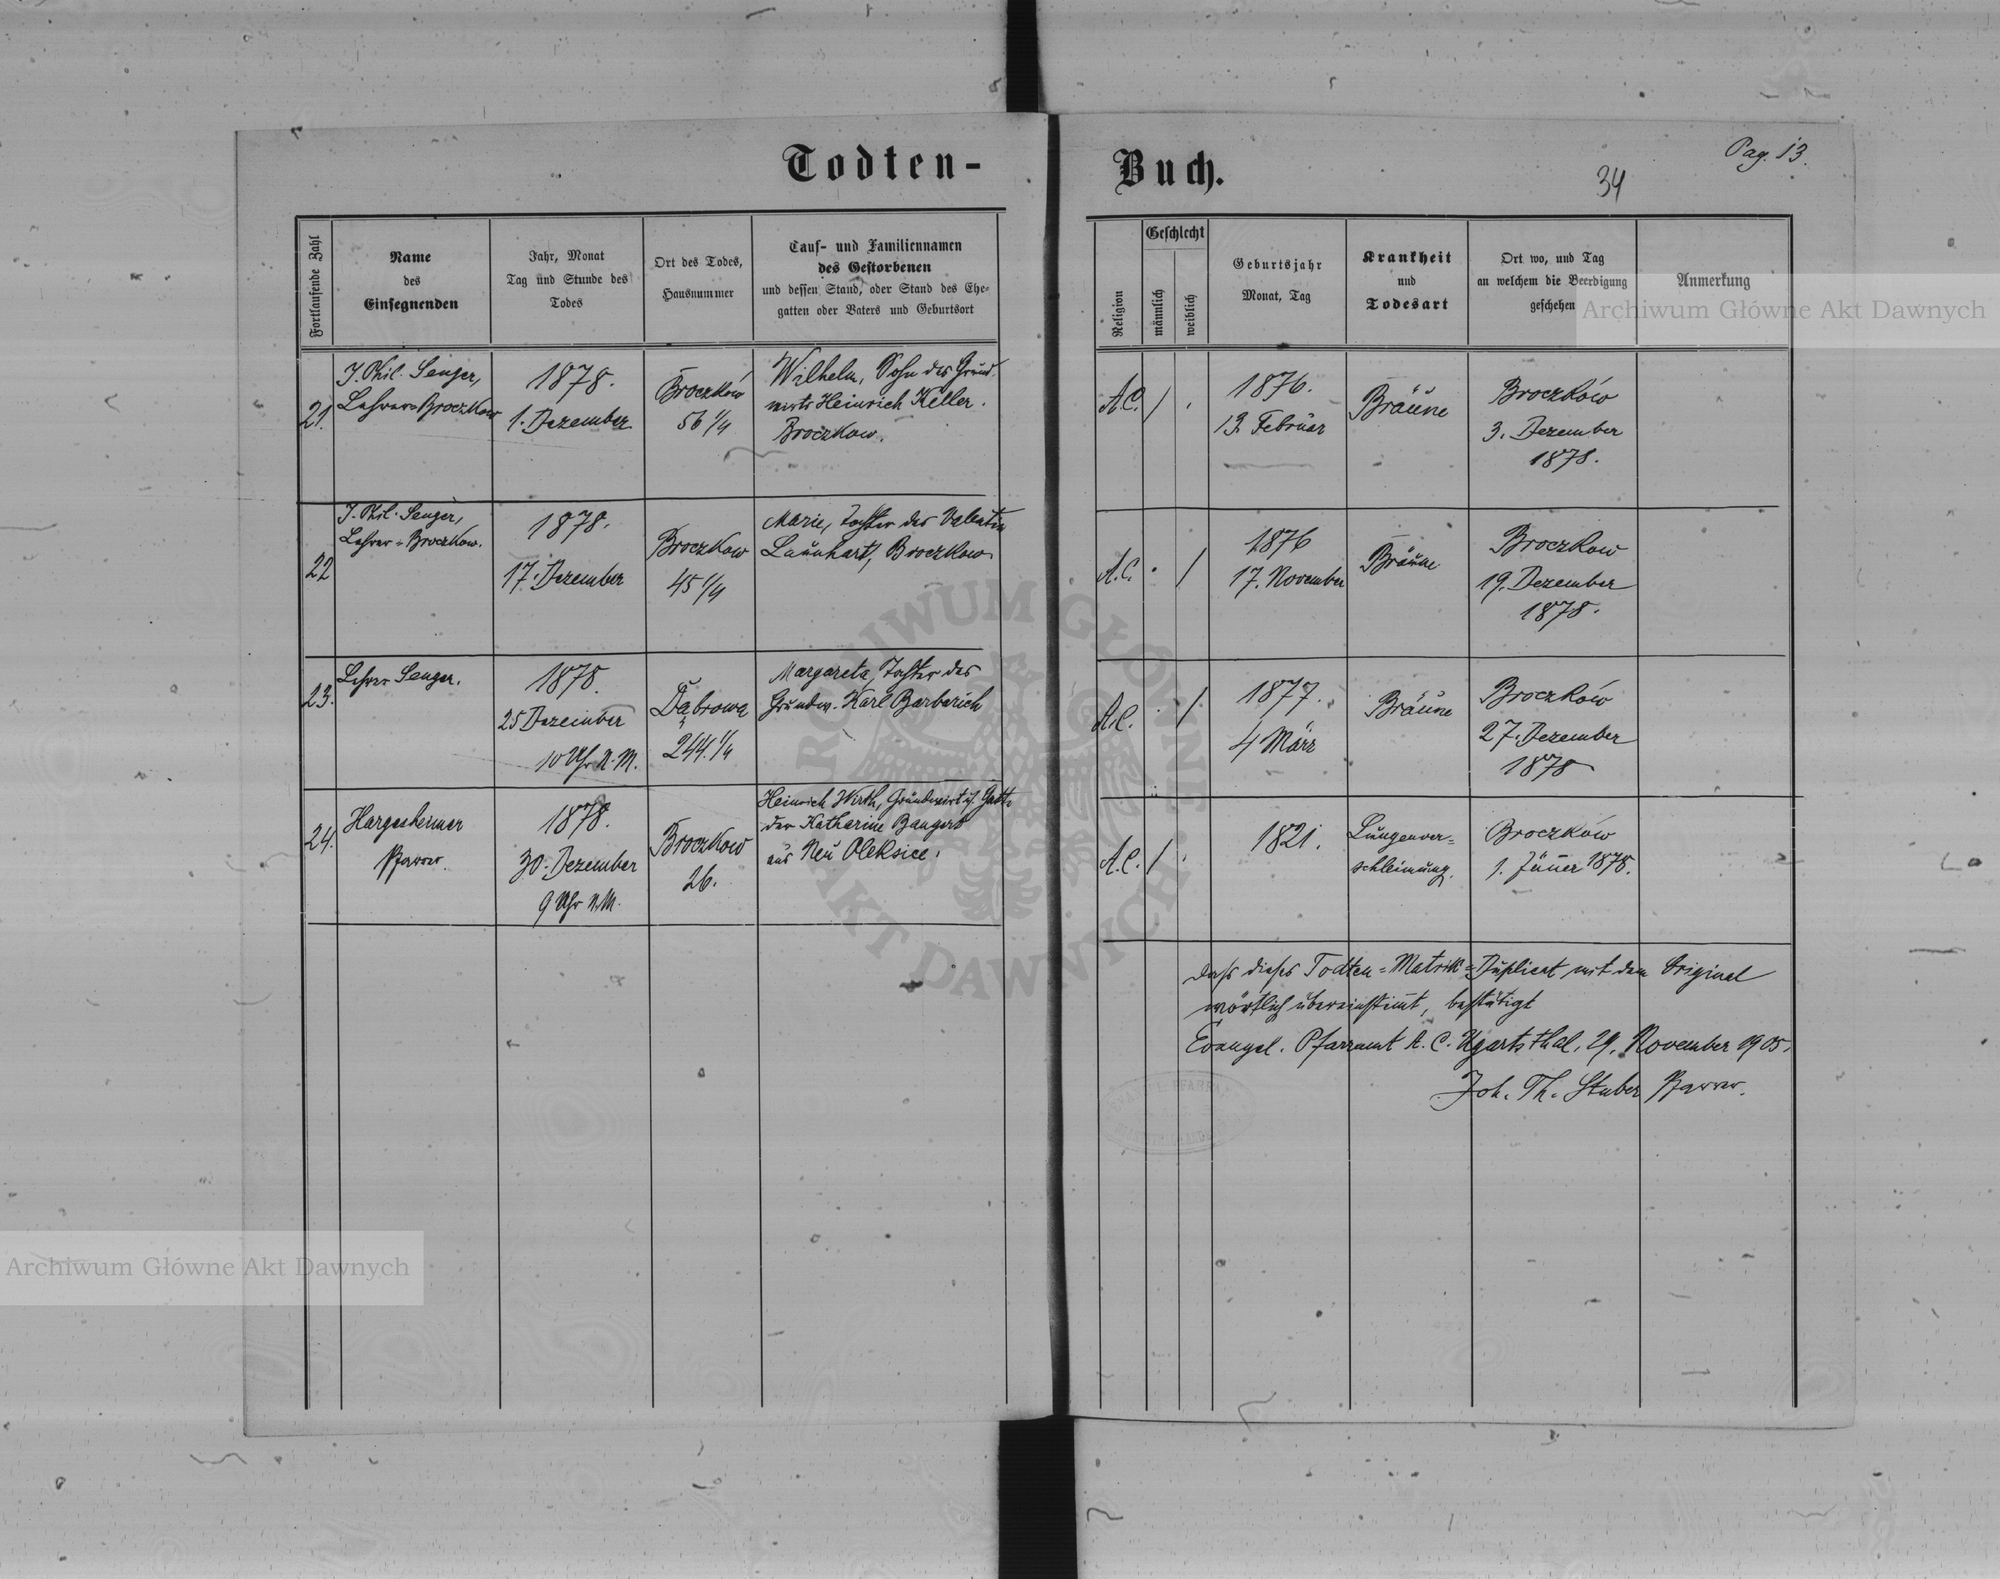 Todten-
Buch.
Pag. 13.
34
Fortlaufende Zahl
Name
des
Einsegnenden
Jahr, Monat
Tag und Stunde des
Todes
Ort des Todes,
Hausnummer
Tauf- und Familiennamen
des Gestorbenen
und dessen Stand, oder Stand des Ehe-
gatten oder Vaters und Geburtsort
Religion
Geschlecht
männlich
weiblich
Geburtsjahr
Monat, Tag
Krankheit
und
Todesart
Ort wo, und Tag
an welchem die Beerdigung
geschehen
Anmerkung
21.
J. Phil. Senger,
Lehrer=Broczkow
1878.
1. Dezember
Broczków
56 1/4
Wilhelm, Sohn des Grund
wirts Heinrich Keller.
Broczkow.
A.C.
/
1876.
13. Februar
Bräune
Broczków
3. Dezember
1878.
22
J. Phil. Senger,
Lehrer=Broczkow.
1878.
17. Dezember
Broczkow
45 1/4
Marie, Tochter des Valentin
Launhart, Broczkow
A.C.
/
1876
17. November
Bräune
Broczkow
19. Dezember
1878.
23.
Lehrer Senger.
1878.
25 Dezember
10 Uhr N.M.
Dąbrowa
244. 1/4
Margareta, Tochter des
Grundw. Karl Barbarich
A.C.
/
1877.
4 März
Bräune
Broczków
27. Dezember
1878
24.
Hargesheimer
Pfarrer.
1878.
30. Dezember
9 Uhr N.M.
Broczkow
26.
Heinrich Wirth, Grundwirt u. Gatte
der Katharine Bangert
aus Neu Oleksice.
A.C.
/
1821.
Lungenver=
schleimung.
Broczków
1. Jäner 1878.
Dass dieses Todten=Matrik=Duplicat mit dem Original
wörtlich übereinstimt, bestätigt
Evangel. Pfarramt A. C. Ugartsthal, 29. November 1905.
Joh. Th. Stuber Pfarrer.
Archiwum Główne Akt Dawnych
Archiwum Główne Akt Dawnych
ARCHIWUM GŁÓWNE AKT DAWNYCH